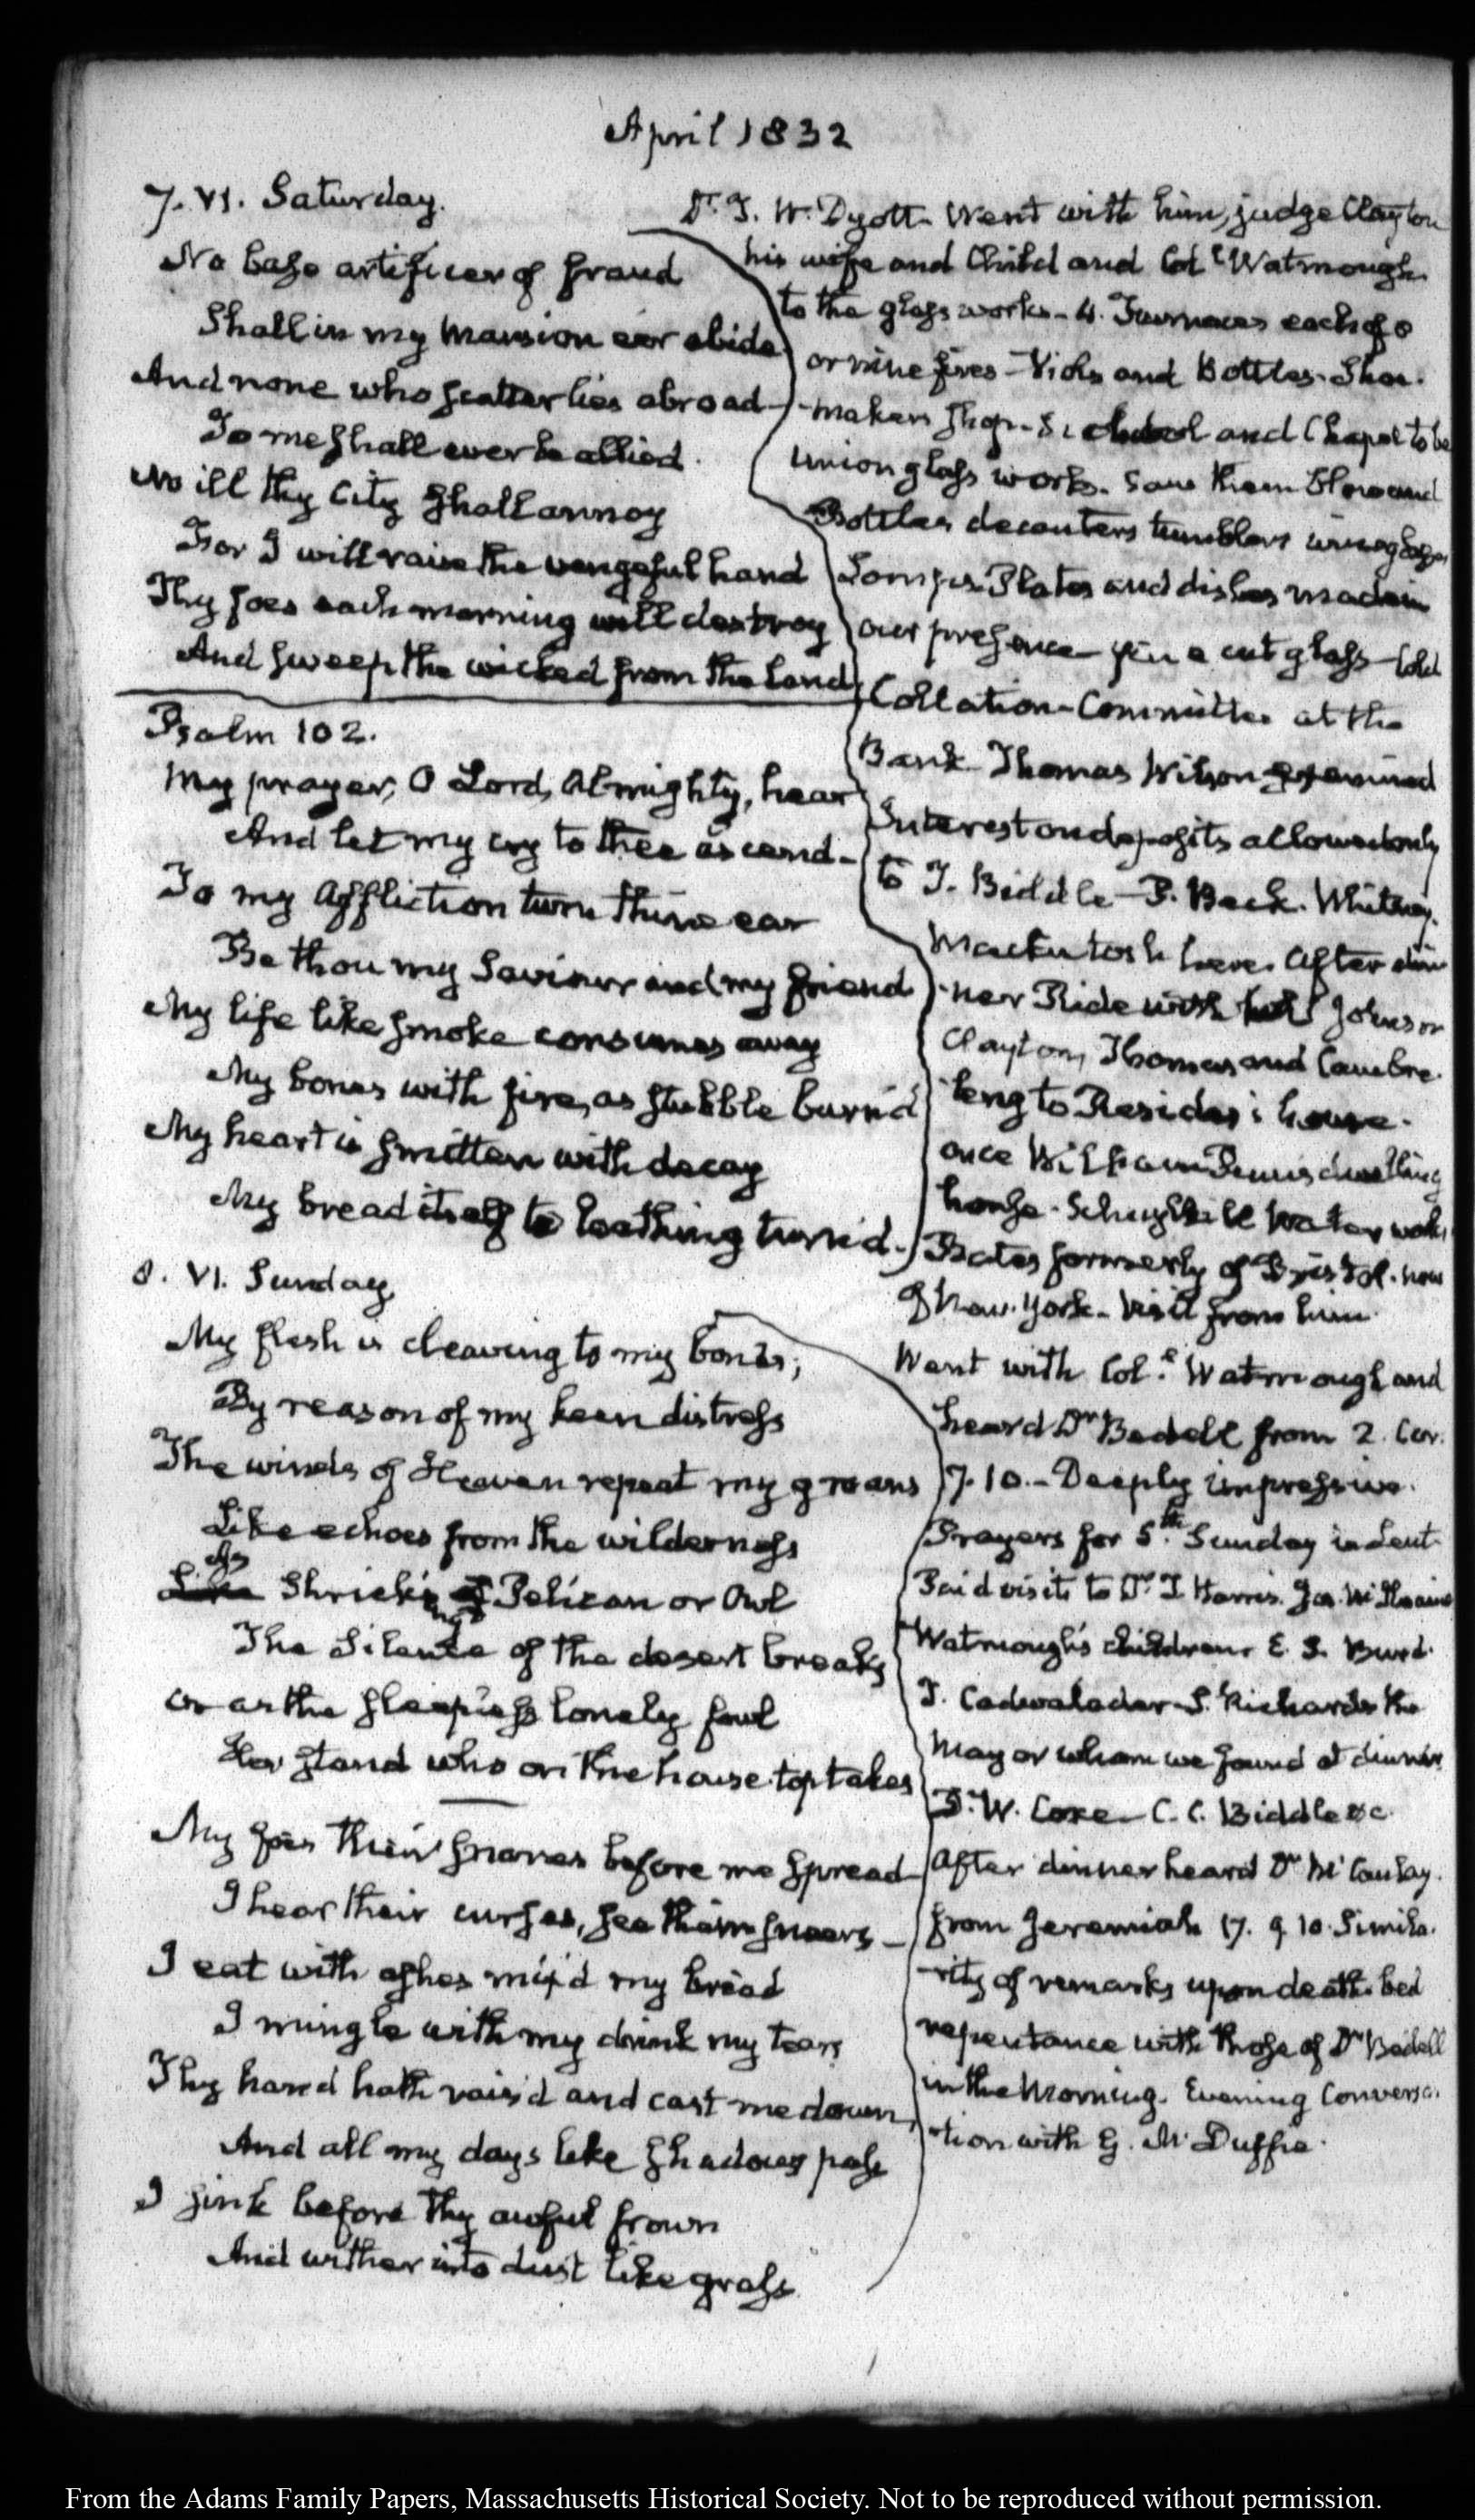 April 1832
7. VI. Saturday.
No base artificer of fraud
Shall in my Mansion e'er abide
And none who scatter lies abroad
To me shall ever be allied.
No ill thy City shall annoy
For I will raise the vengeful hand
Thy foes each morning will destroy
And sweep the wicked from the Land
Psalm 102.
My prayer, O Lord, Almighty, hear
And let my cry to thee ascend-
To my affliction turn thine ear
Be thou my Saviour and my friend
My life like smoke consumes away
My bones with fire, as stubble burn'd
My heart is smitten with decay
My bread itself to loathing turn'd.
Dr. T. W. Dyott. Went with him, judge Clayton
his wife and Child and Coll. Watmough
to the glass works- 4. Furnaces each of 8
or nine fires- Viols and Bottles. Shoe.
-maker's shop- School and Chapel to be
Union glass works. Saw them blow and
Bottles decanters tumblers wineglasses
Lamps. Plates and dishes made in
our presence a cut glass- Cold
Collation- Committee at the
Bank Thomas Wilson examined
Interest on deposits allowed only
to T. Biddle- P. Beck. Whitney.
Mackintosh here. After din
-ner Ride with Johnson
Clayton, Thomas and Cambre.
leng to house.
once William Penn's dwelling
house. Schuylkill Water works
Bates formerly of Bristol. now
of New-York- Visit from him.
8. VI. Sunday
My flesh is cleaving to my bones;
By reason of my keen distress
The winds of Heaven repeat my groans
Like echoes from the wilderness
As
Like Shrieking Pelican or Owl
The Silence of the desert breaks
or as the sleepless lonely fowl
Her stand who on the house top takes
My foes their snares before me spread
I hear their curses, see them sneers-
I eat with ashes mix'd my bread
I mingle with my drink my tears
Thy hand hath rais'd and cast me down,
And all my days like shadows pass
I sink before thy awful frown
And wither into dust like grass
Went with Coll. Watmough and
heard Dr. Bedell from 2. Cor.
7. 10.- Deeply impressive.
Prayers for 5th. Sunday in Lent.
Paid visits to Dr. T Harris. Jos. McIlvaine
Watmough's children. E. S. Burd.
T. Cadwalader- Richards the
Mayor whom we found at dinner
W. Coxe- C. C. Biddle &c.
After dinner heard Dr. McCauley.
from Jeremiah 17. 9. 10. Simila.
-rity of remarks upon death bed
repentance with those of Dr. Bedell
in the Morning. Evening Conversa.
-tion with G. McDuffie.
From the Adams Family Papers, Massachusetts Historical Society. Not to be reproduced without permission.